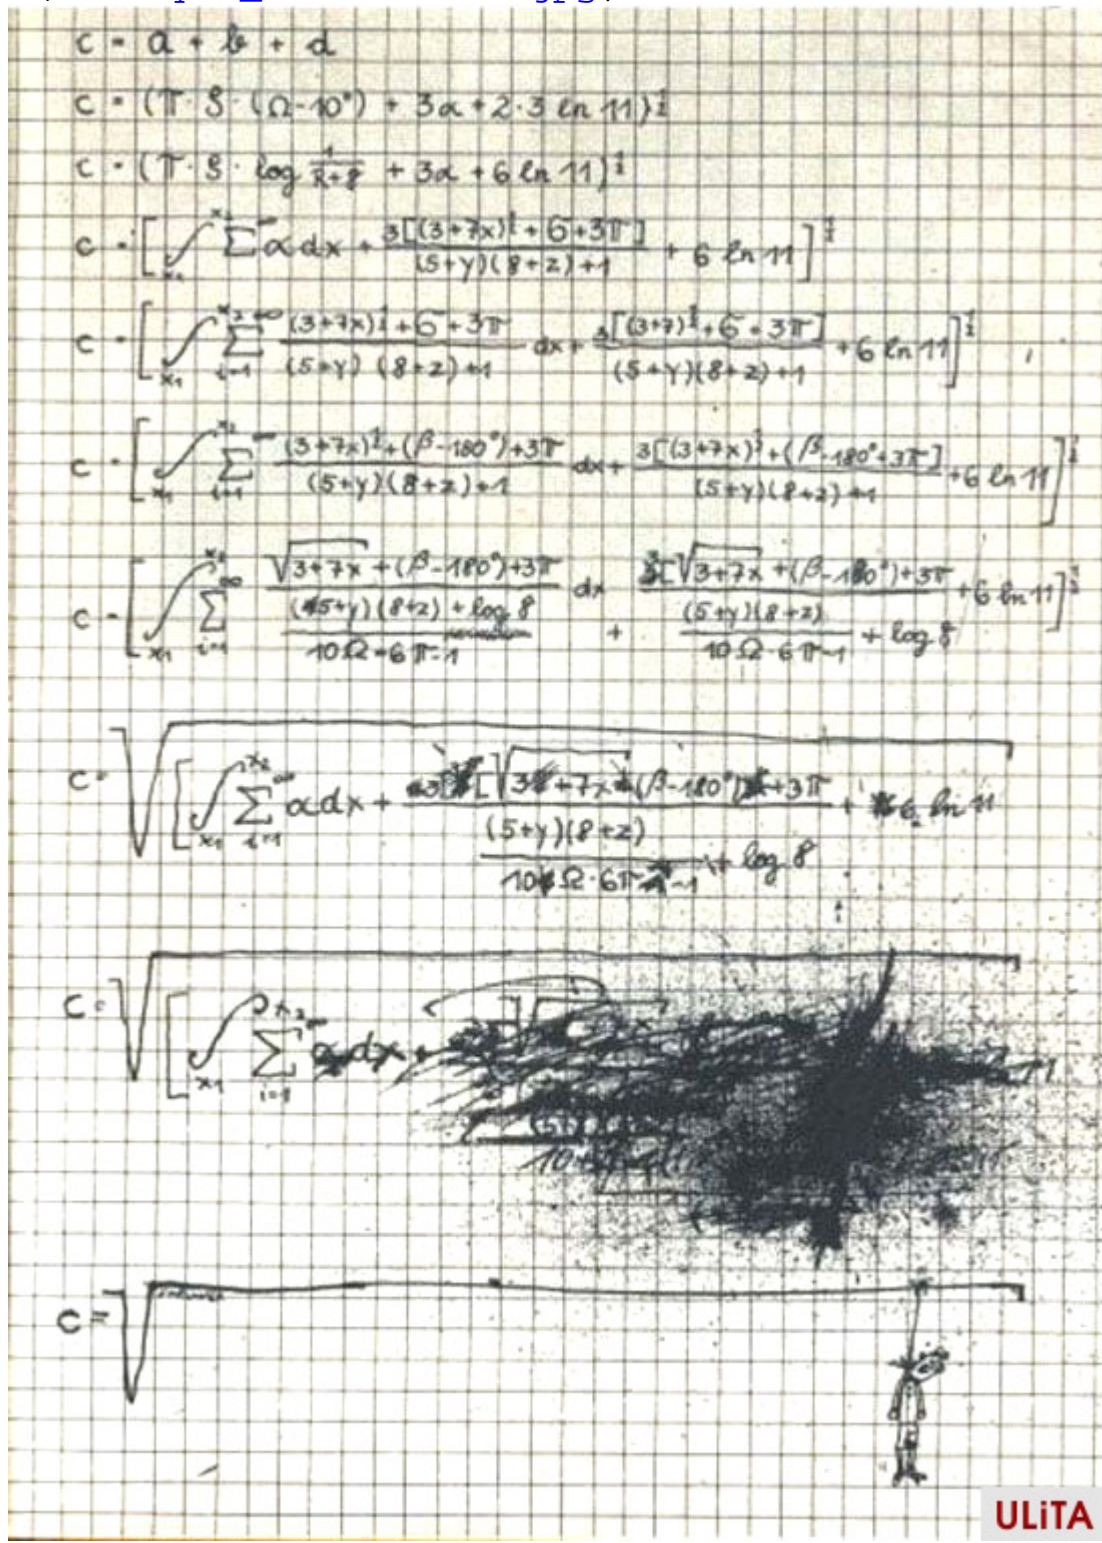 c = a + b + d
c = (π · S · (Ω-10°) + 3α + 2·3 ln 11)^½
c = (π · S · log + 3α + 6 ln 11)^½
c = [∫x₁ x₂ Σ ∞ α dx + 3[(3+7x)^½ + 6 + 3π] / (5+y)(8+z)+1 + 6 ln 11]^½
c = [∫x₁ x₂ Σ i=1 ∞ (3+7x)^½ + 6 + 3π / (5+y) (8+z)+1 dx + 3[(3+7)^½ + 6 + 3π] / (5+y)(8+z)+1 + 6 ln 11]^½
c = [∫x₁ x₂ Σ i=1 ∞ (3+7x)^½ + (β-180°)+3π / (5+y)(8+z)+1 dx + 3[(3+7x)^½ + (β-180°+3π] / (5+y)(8+z)+1 + 6 ln 11]^½
c = [∫x₁ x₂ Σ i=1 ∞ √3+7x + (β-180°)+3π / (5+y)(8+z) + log 8 / 10Ω·6π-1 dx + 3[√3+7x + (β-180°)+3π / (5+y)(8+z) / 10Ω·6π-1 + log 8 + 6 ln 11]^½
c = √[∫x₁ x₂ Σ i=1 ∞ α dx + 3[√3+7x (β-180°) + 3π / (5+y)(8+z) / 10Ω·6π-1 + log 8 + 6 ln 11
c = √[∫x₁ x₂ Σ i=1 ∞ α dx + 11
c = √
ULiTA